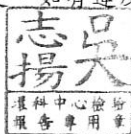 如有違
吳志揚
環科中心檢驗
報告專用章